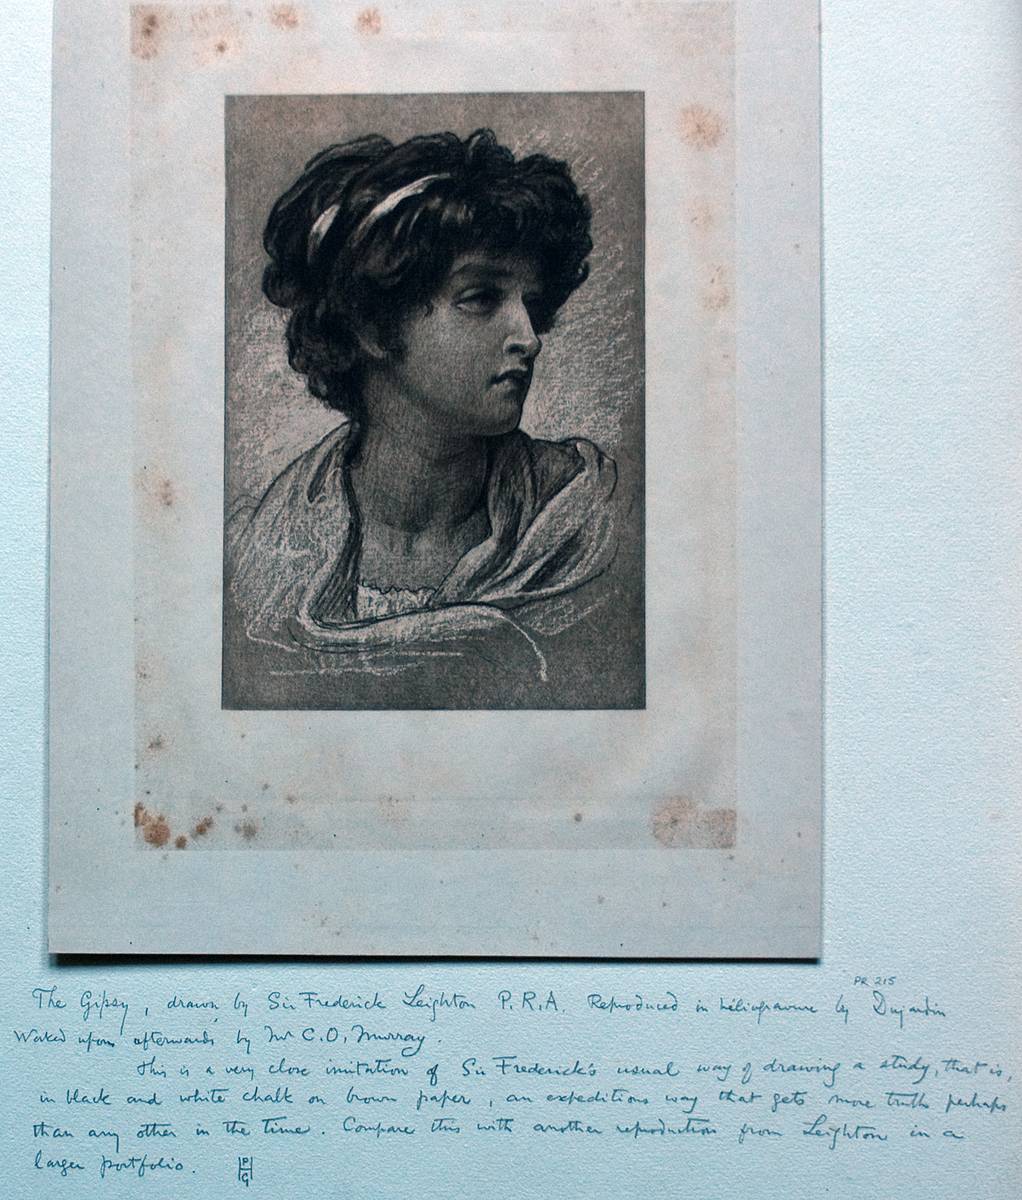 PR 215
The Gipsy, drawn by Sir Frederick Leighton P.R.A. Reproduced in héliogravure by Dujardin
Worked upon afterwards by Mr C.O. Murray.
This is a very close imitation of Sir Frederick's usual way of drawing a study, that is,
in black and white chalk on brown paper, an expeditious way that gets more truth perhaps
than any other in the time. Compare this with another reproduction from Leighton in a
larger portfolio. PGH